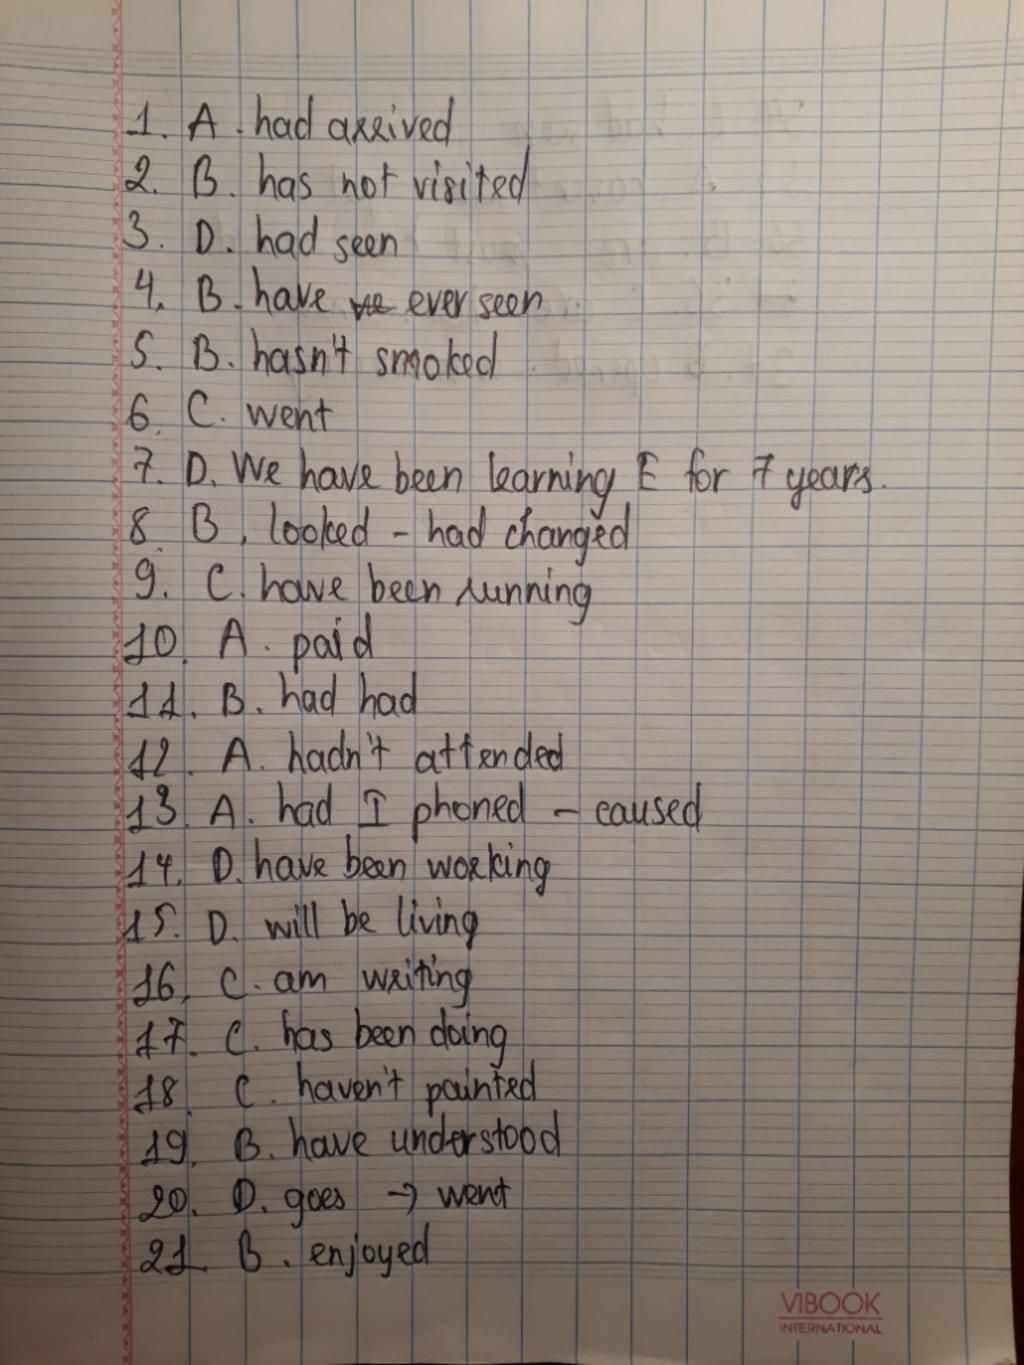 1. A. had arrived
2. B. has not visited
3. D. had seen
4. B. have ever seen
5. B. hasn't smoked
6. C. went
7. D. We have been learning E for 7 years.
8. B. looked - had changed
9. C. have been running
10. A. paid
11. B. had had
12. A. hadn't attended
13. A. had I phoned - caused
14. D. have been working
15. D. will be living
16. C. am writing
17. C. has been doing
18. C. haven't painted
19. B. have understood
20. D. goes → went
21. B. enjoyed
VIBOOK
INTERNATIONAL